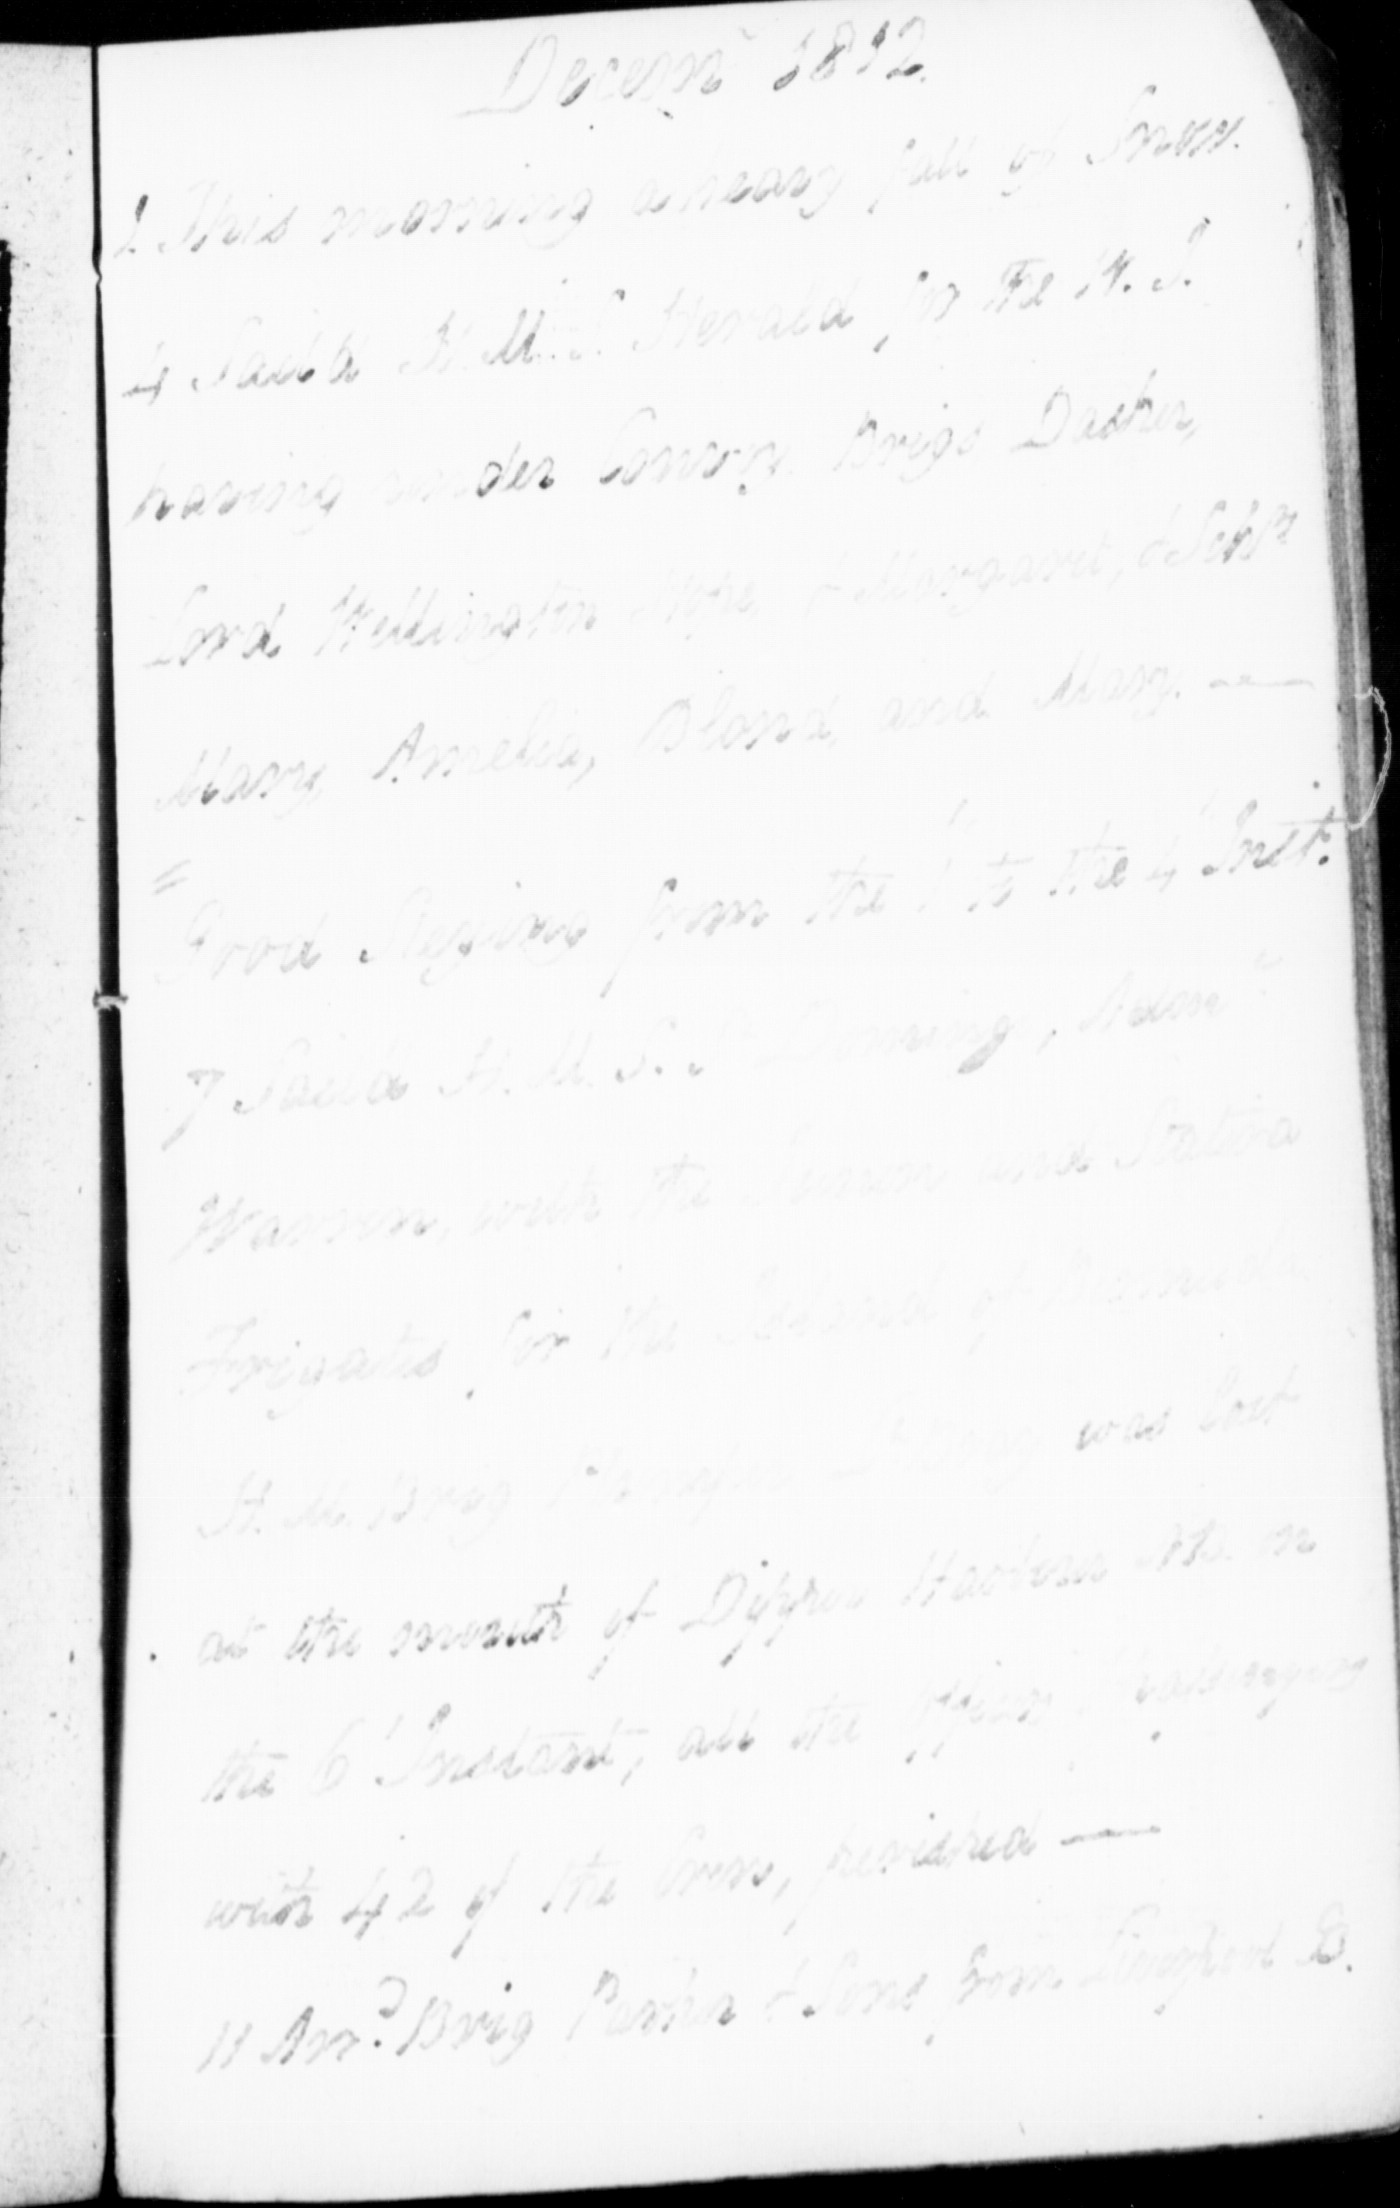 Decemr 1812.
2 This morning a heavy fall of Snow.
4 Sail'd H.M.S. Herald for the W.I.
having under Convoy Brigs Dasher,
Lord Wellington Hope & Margaret, & Schrs
Mary, Amelia, Blond, and Mary. —
= Good Slaying from the 1 to the 4 Inst.
7 Sail'd H.M.S. St Domingo, Adml
Warren, with the Junon and Statira
Frigates for the Island of Bermuda
H.M. Brig Plumper Bray was lost
at the mouth of Dipper Harbour NB. on
the 6 Instant, all the Officers
with 42 of the Crew, perished —
11 Arrd. Brig & Sons from B.